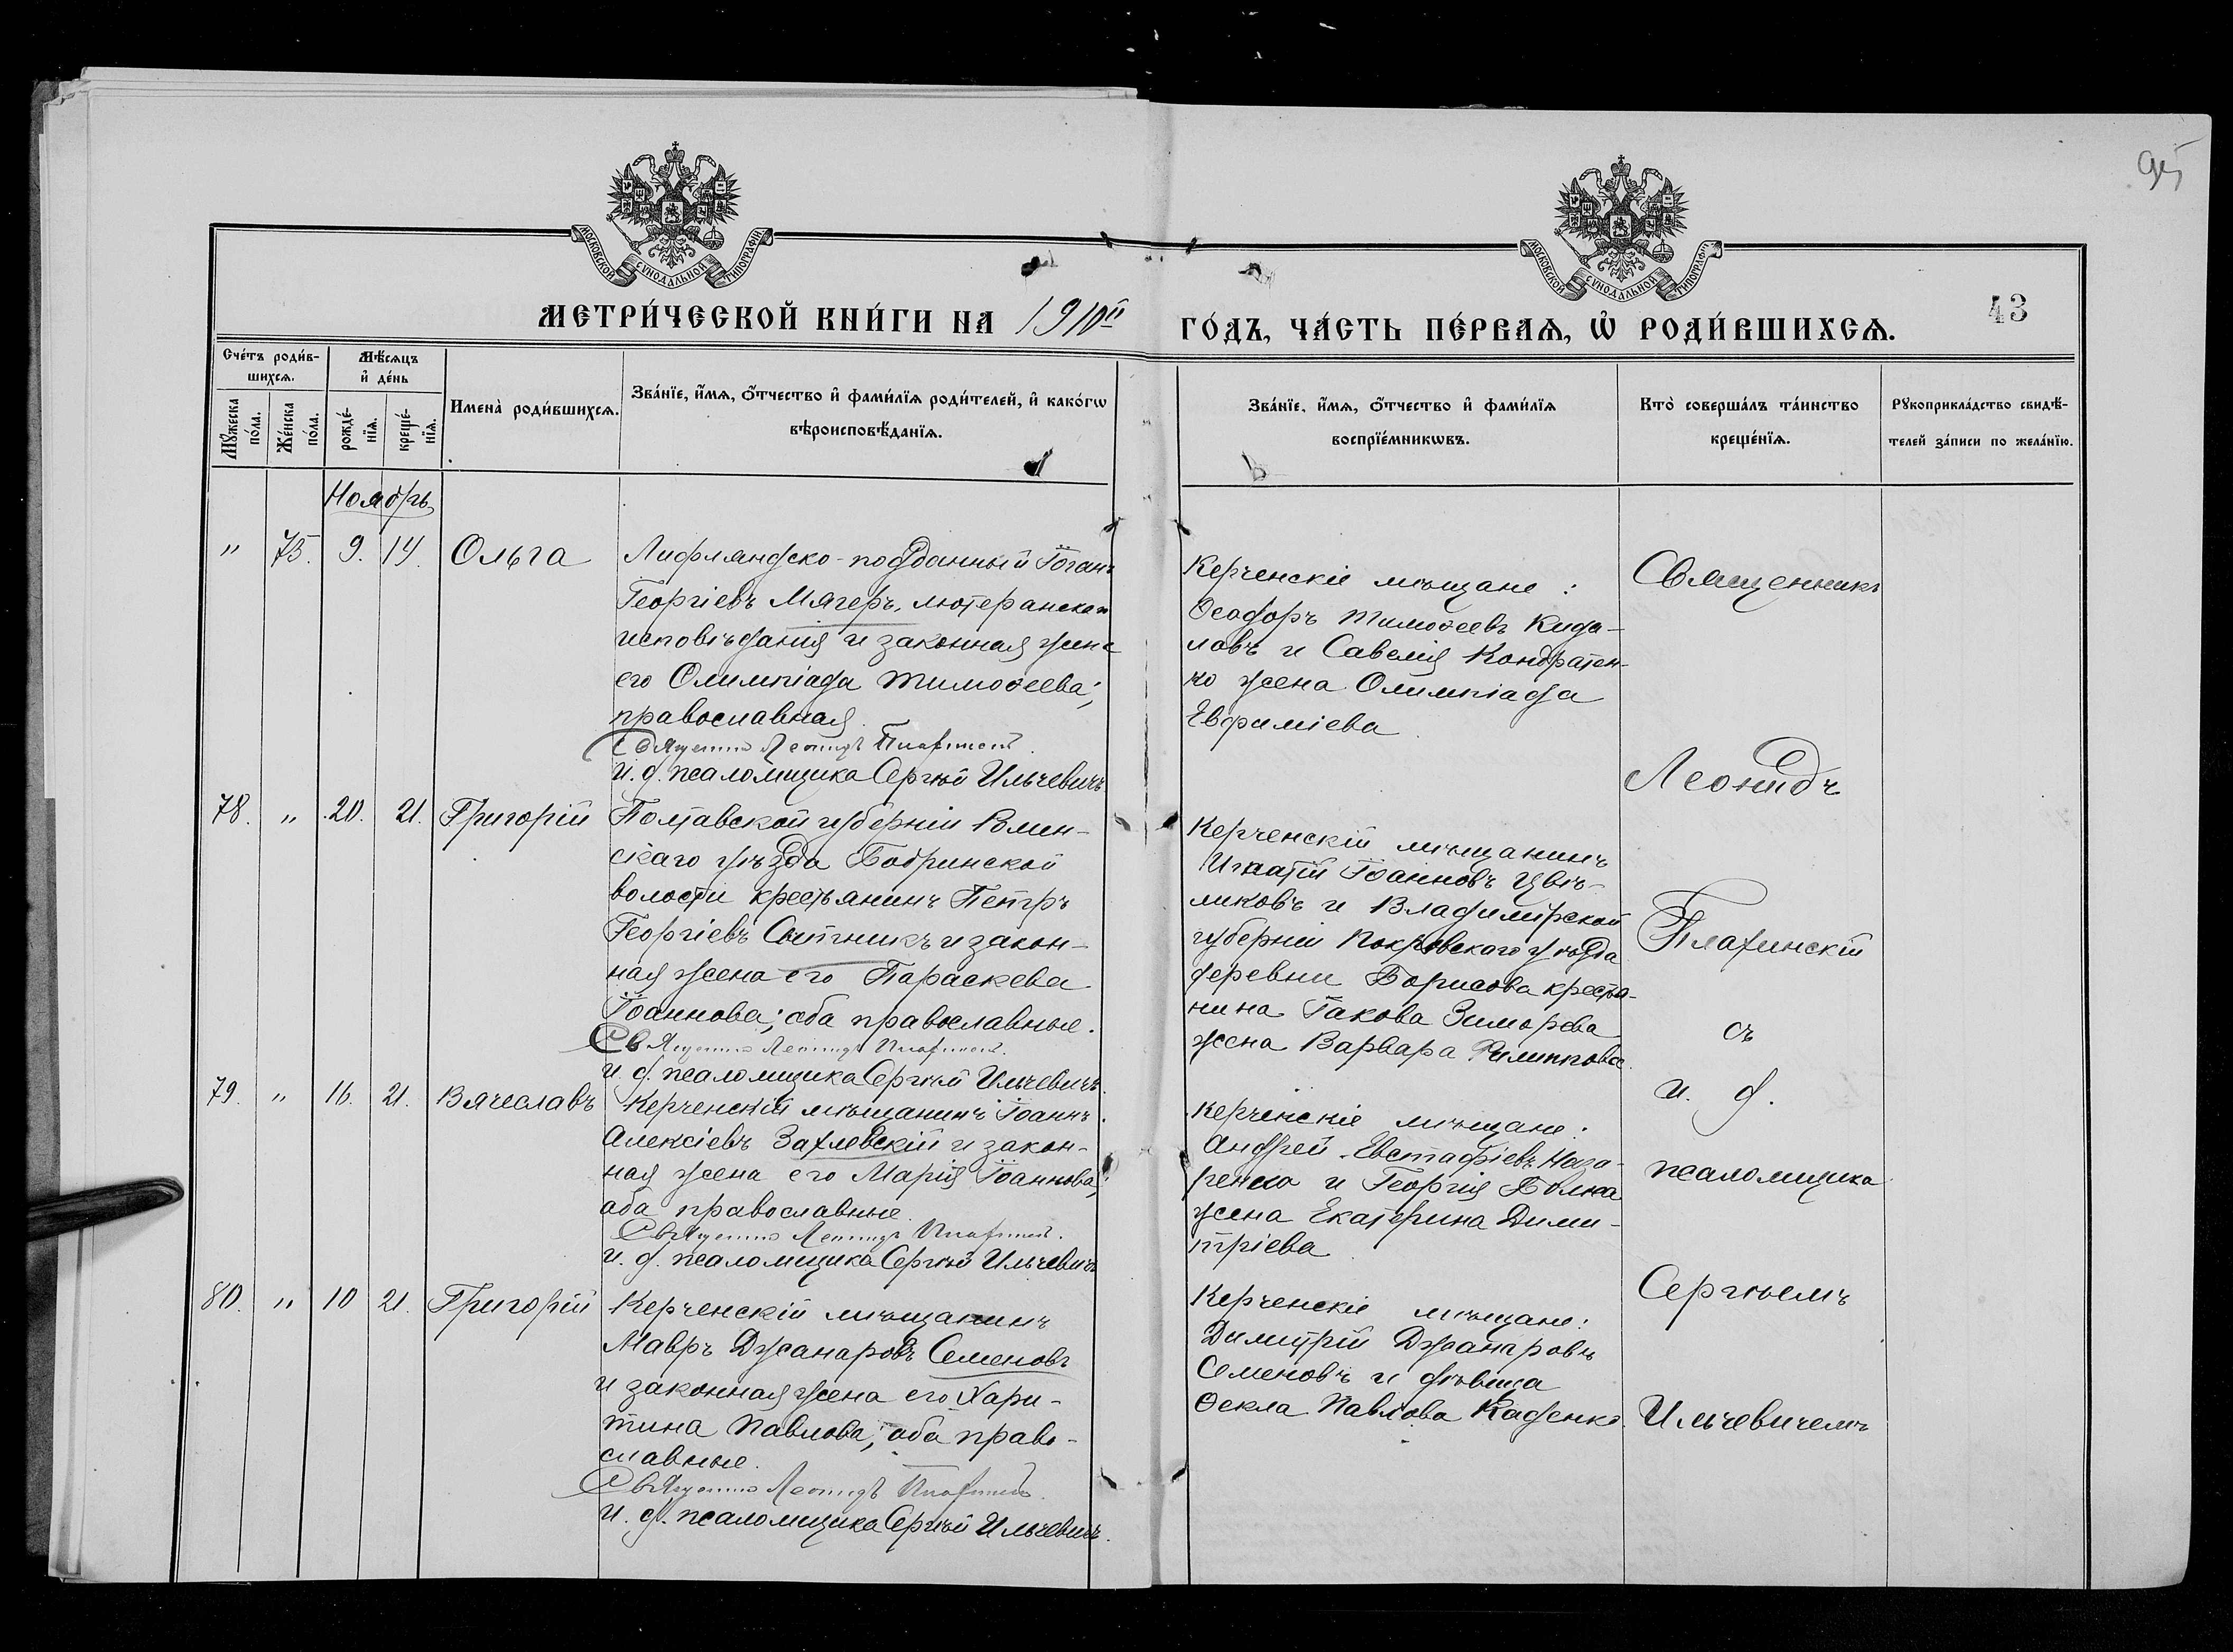 95
МОСКОВСКОЙ СѴНОДАЛЬНОЙ ТИПОГРАФІИ
МОСКОВСКОЙ СѴНОДАЛЬНОЙ ТИПОГРАФІИ
МЕТРИ́ЧЕСКОЙ КНИ́ГИ НА 1910й ГО́ДЪ, ЧА́СТЬ ПЕ́РВАѦ, Ѡ҆ РОДИ́ВШИХСѦ.
43
Сче́тъ роди́в-
шихсѧ.
Мꙋ́жеска по́ла.
Же́нска по́ла.
Мѣ́сѧцъ
и҆ де́нь
рожде́-
нїѧ.
креще́-
нїѧ.
Имена̀ роди́вшихсѧ.
Зва́нїе, и҆́мѧ, ѻ҆́тчество и҆ фами́лїѧ роди́телей, и҆ како́гѡ
вѣроисповѣ́данїѧ.
Зва́нїе, и҆́мѧ, ѻ҆́тчество и҆ фами́лїѧ
воспрїе́мникѡвъ.
Кто̀ соверша́лъ та́инство
креще́нїѧ.
Рꙋкоприкла́дство свидѣ́-
телей за́писи по жела́нїю.
Ноябрь
" 75. 9. 14. Ольга
Лифляндско-подданный Іоганъ
Георгіевъ Мягеръ, лютеранскаго
исповѣданія и законная жена
его Олимпіада Тимоѳеева;
православная.
Священникъ Леонидъ
и. д. псаломщика Сергѣй Ильчевичъ
Керченскіе мѣщане:
Ѳеодоръ Тимоѳеевъ Кида-
ловъ и Савелія Кондратен-
ко жена Олимпіада
Евфиміева
Священникъ
Леонидъ
78. " 20. 21. Григорій
Полтавской губерніи Ромен-
скаго уѣзда Бобринской
волости крестьянинъ Петръ
Георгіевъ Сытникъ и закон-
ная жена его Параскева
Іоаннова; оба православные.
Священникъ Леонидъ
и. д. псаломщика Сергѣй Ильчевичъ.
Керченскій мѣщанинъ
Игнатій Іоанновъ Цвѣ-
ликовъ и Владимірской
губерніи Покровскаго уѣзда
деревни Борисова крестья-
нина Іакова Зиморева
жена Варвара Филиппова.
съ
и. д.
79. " 16. 21. Вячеславъ
Керченскій мѣщанинъ Іоаннъ
Алексіевъ Захлевскій и закон-
ная жена его Марія Іоаннова;
оба православные.
Священникъ Леонидъ
и. д. псаломщика Сергѣй Ильчевичъ
Керченскіе мѣщане:
Андрей Евстафіевъ Наза-
ренко и Георгія Волка
жена Екатерина Дими-
тріева
псаломщика
80. " 10 21. Григорій
Керченскій мѣщанинъ
Мавръ Джанаровъ Семеновъ
и законная жена его Хари-
тина Павлова; оба право-
славные.
Священникъ Леонидъ
и. д. псаломщика Сергѣй Ильчевичъ.
Керченскіе мѣщане:
Димитрій Джанаровъ
Семеновъ и дѣвица
Ѳекла Павлова Каденко.
Сергѣемъ
Ильчевичемъ